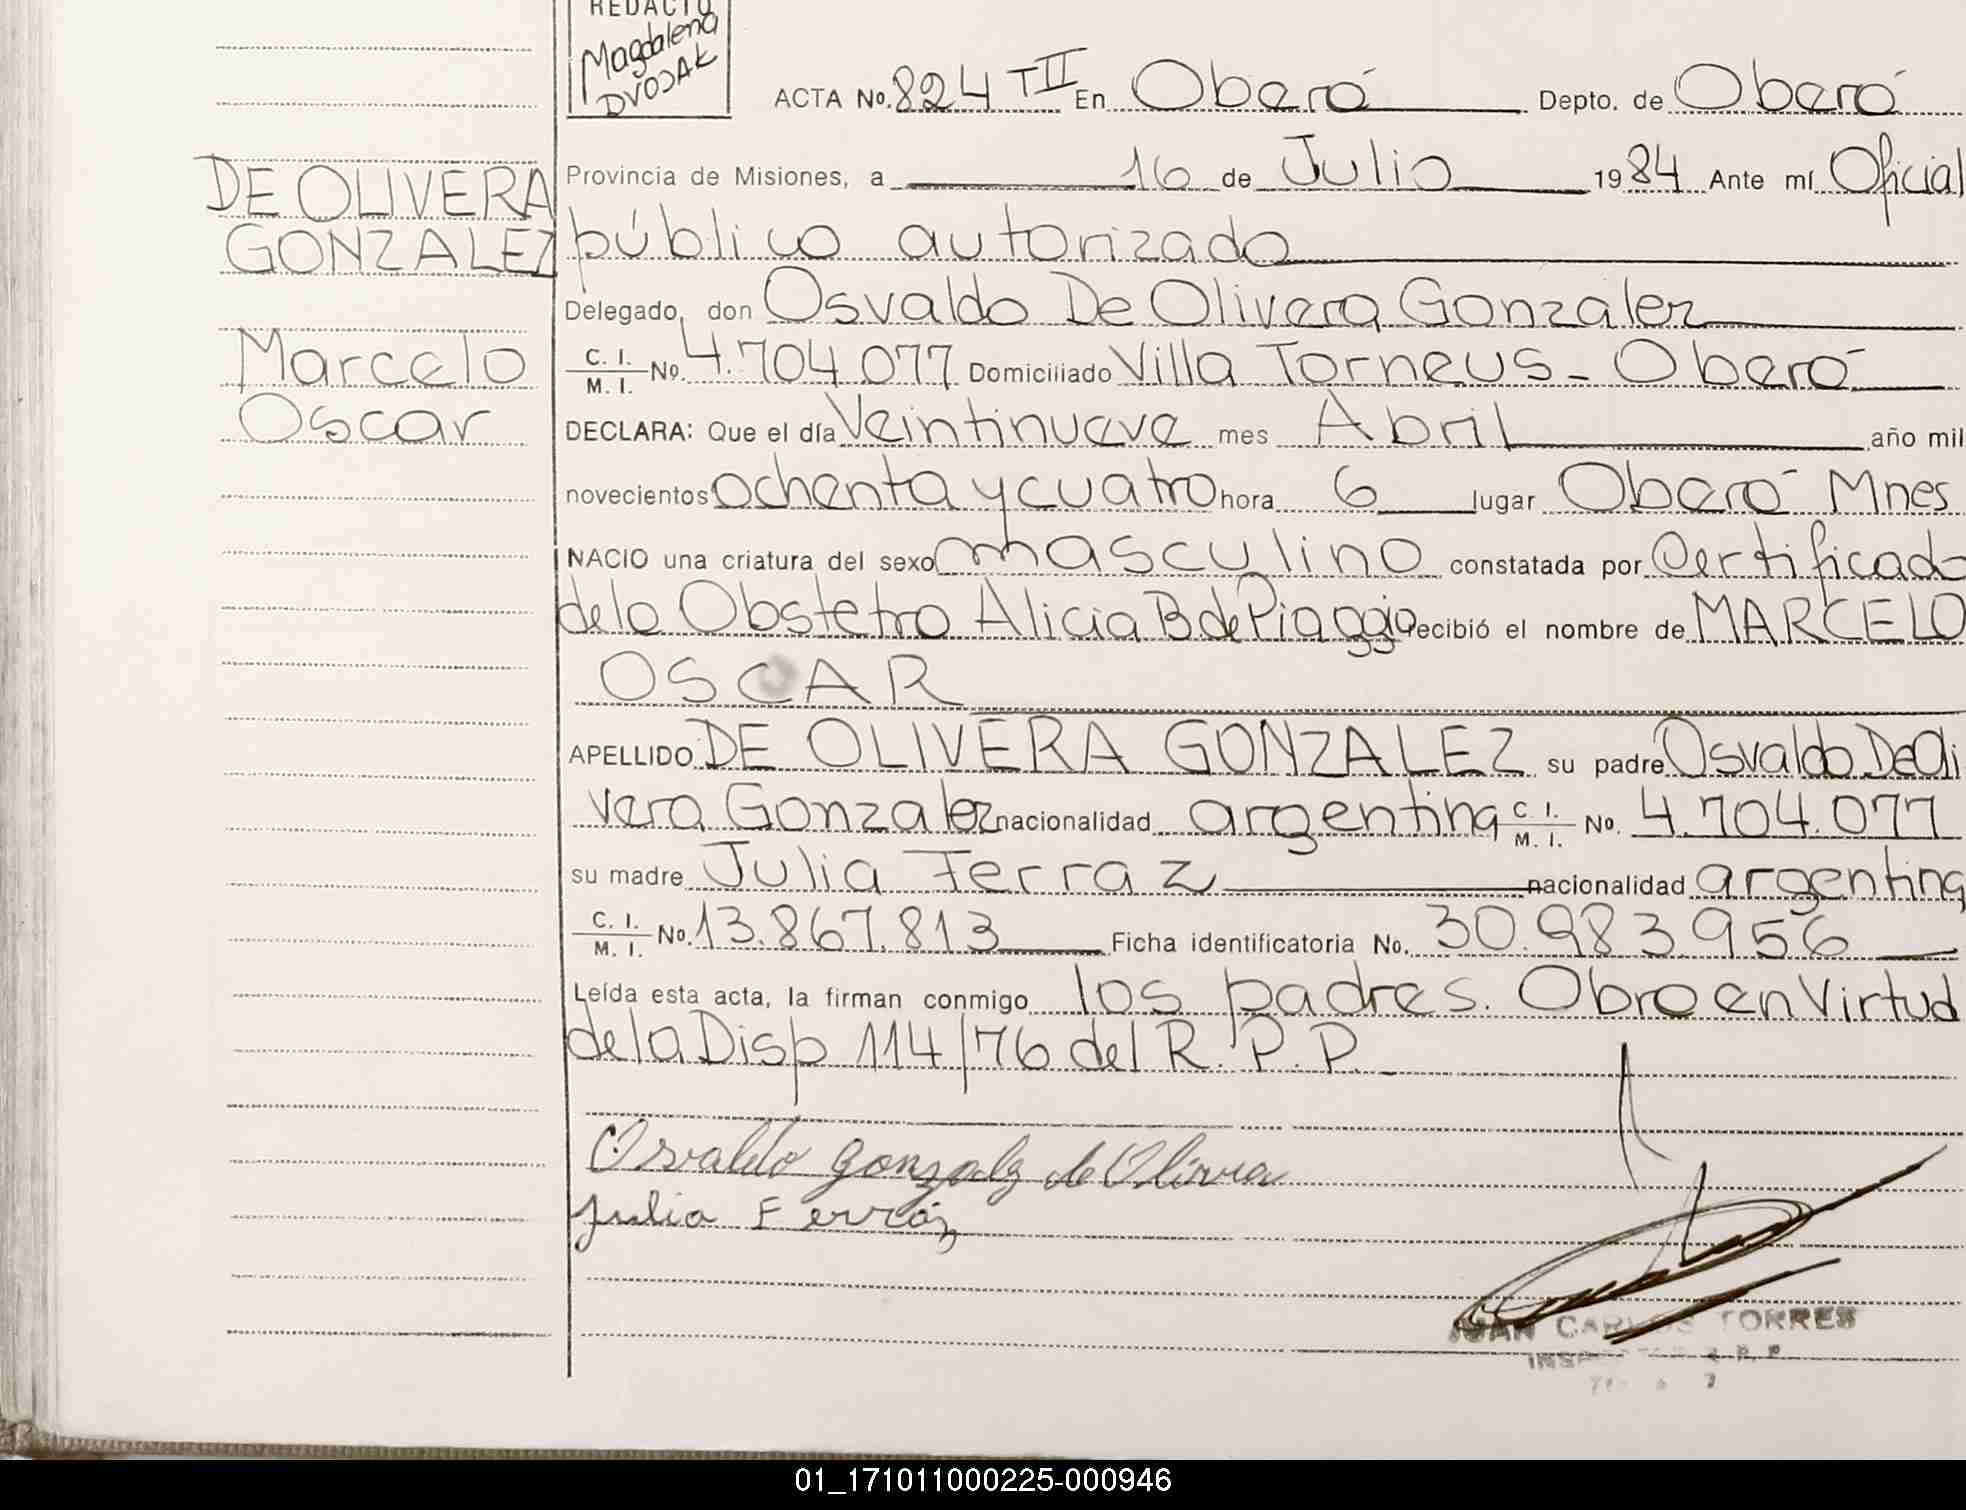 REDACTO
Magdalena
DVOJAK
ACTA No. 824 TII En Oberá Depto. de Oberá
DE OLIVERA
GONZALEZ
Marcelo
Oscar
Provincia de Misiones, a 16 de Julio 1984 Ante mí Oficial
público autorizado
Delegado, don Osvaldo De Olivera Gonzalez
C. I. M. I. No. 4.704.077 Domiciliado Villa Torneus - Oberá
DECLARA: Que el día Veintinueve mes Abril año mil
novecientos ochenta y cuatro hora 6 lugar Oberá Mnes
NACIO una criatura del sexo masculino constatada por Certificado
de la Obstetra Alicia B de Piaggio recibió el nombre de MARCELO
OSCAR
APELLIDO DE OLIVERA GONZALEZ su padre Osvaldo De Oli
vera Gonzalez nacionalidad argentina C. I. M. I. No. 4.704.077
su madre Julia Ferraz nacionalidad argentina
C. I. M. I. No. 13.867.813 Ficha identificatoria No. 30.983.956
Leída esta acta, la firman conmigo los padres. Obro en Virtud
de la Disp 114/76 del R. P. P.
Osvaldo Gonzalz de Olivera
Julia Ferraz
JUAN CARLOS TORRES
01_171011000225-000946